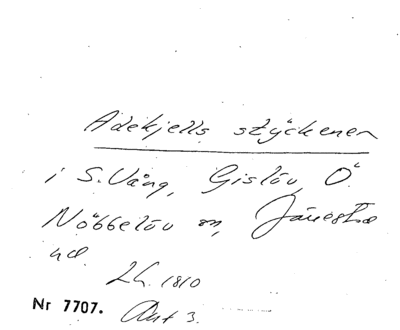 Adekjells stÿckenen
i S. Vång, Gislöv, Ö.
Nöbbelöv sn, Järresta
hd.
Lh. 1810
Nr 7707. Akt 3.